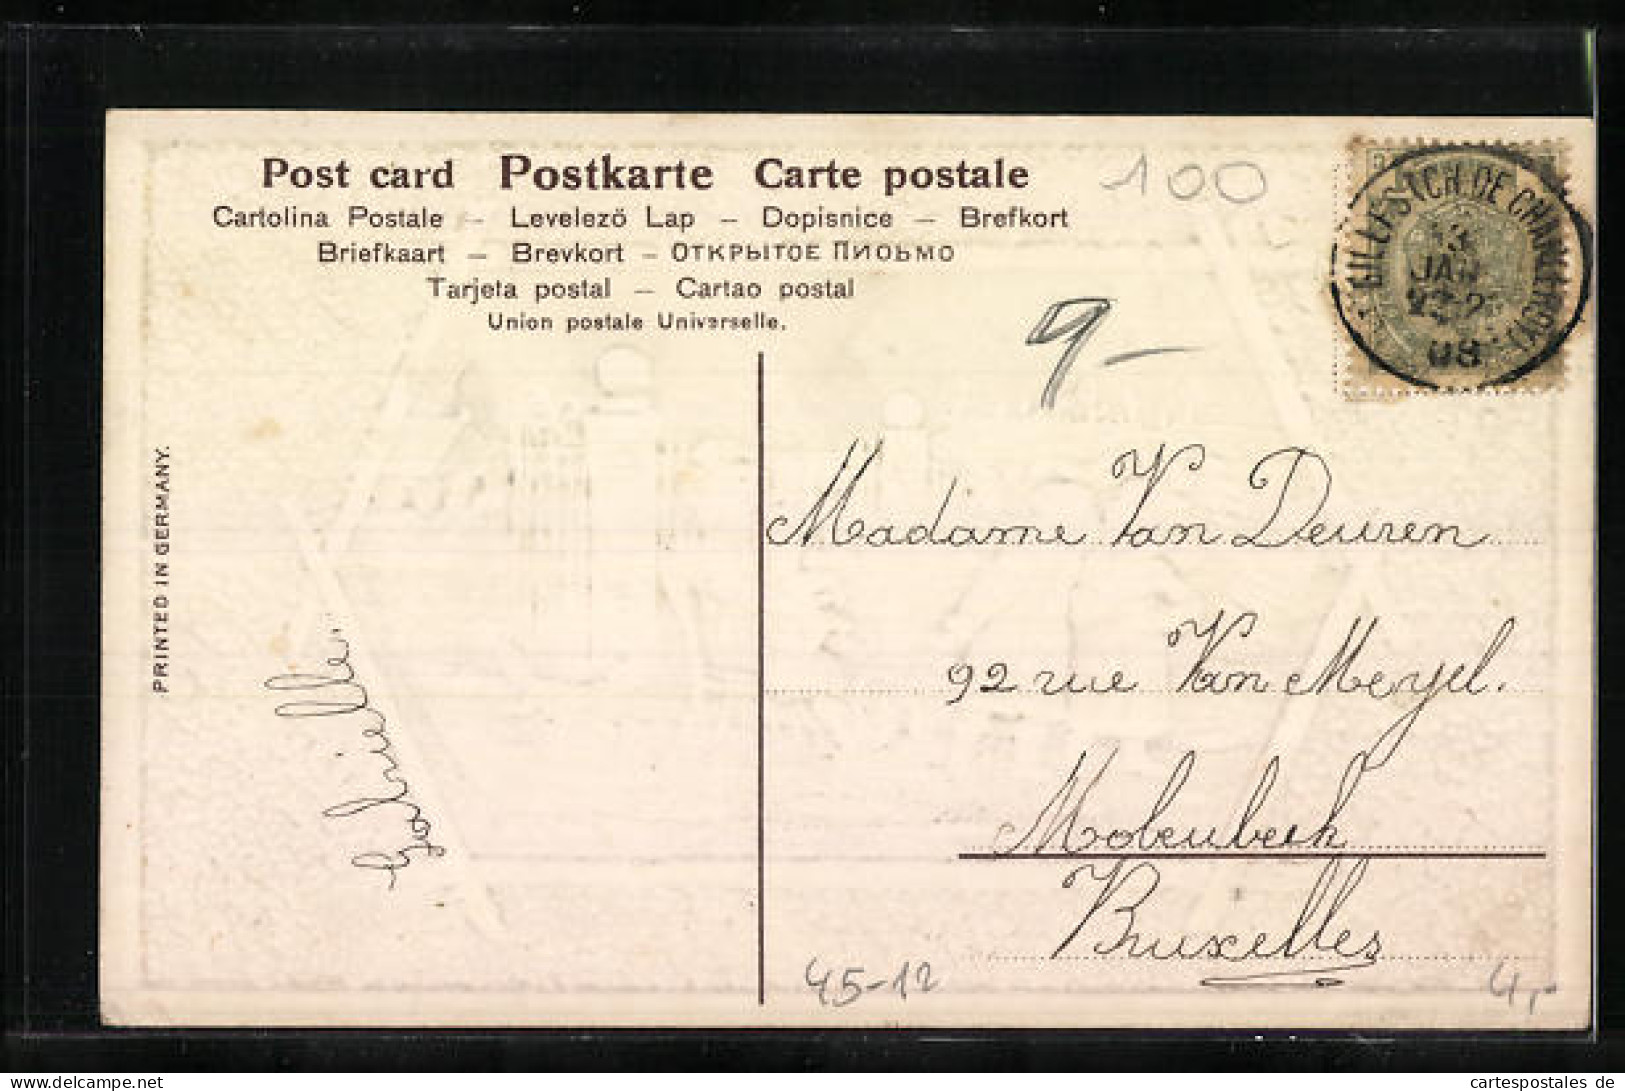 Post card Postkarte Carte postale
Cartolina Postale – Levelező Lap – Dopisnice – Brefkort
Briefkaart – Brevkort – ОТКРЫТОЕ ПИСЬМО
Tarjeta postal – Cartao postal
Union postale Universelle.
100
9-
JAN
08
PRINTED IN GERMANY.
Madame Van Deuren
92 rue Van Meyel.
Molenbeek
Bruxelles
45-12
4,-
cartespostales de